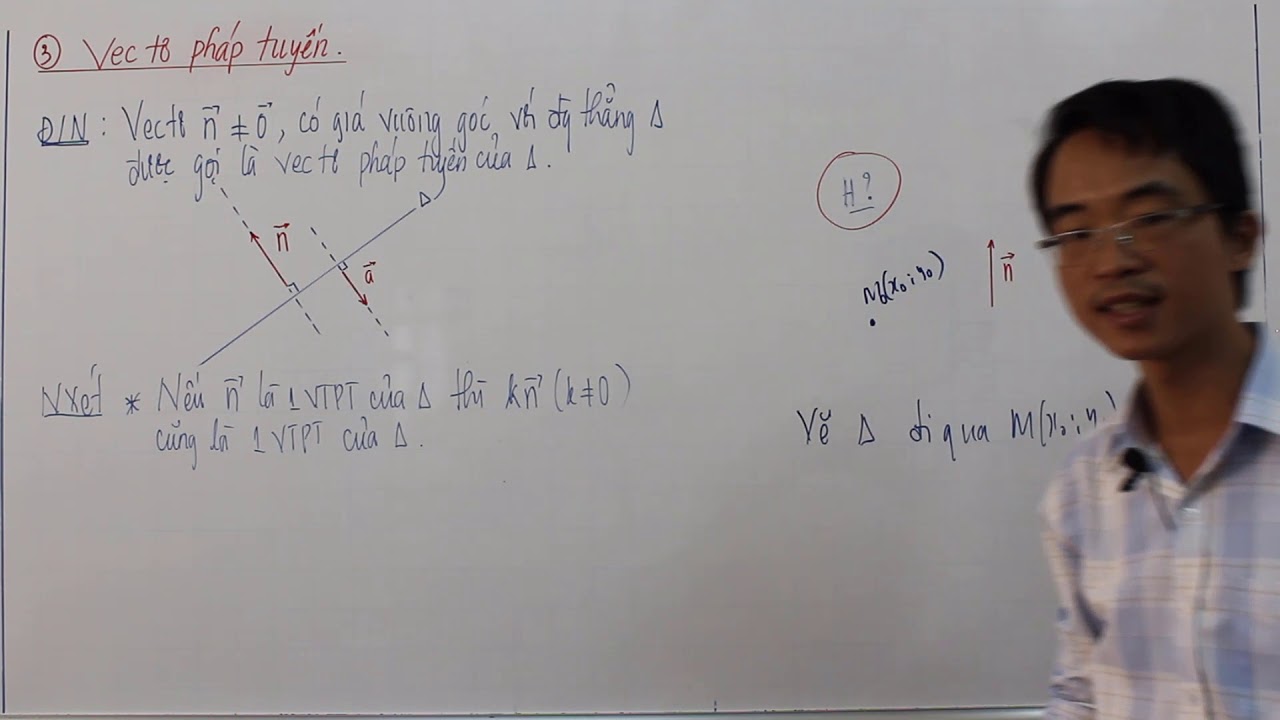 ③ Vectơ pháp tuyến.
Đ/N : Vectơ n⃗ ≠ 0⃗, có giá vuông góc với đg thẳng Δ
được gọi là vectơ pháp tuyến của Δ.
Δ
n⃗
a⃗
NXét * Nếu n⃗ là 1 VTPT của Δ thì kn⃗ (k ≠ 0)
cũng là 1 VTPT của Δ.
H?
M(x₀; y₀)
n⃗
Vẽ Δ đi qua M(x₀; y₀)